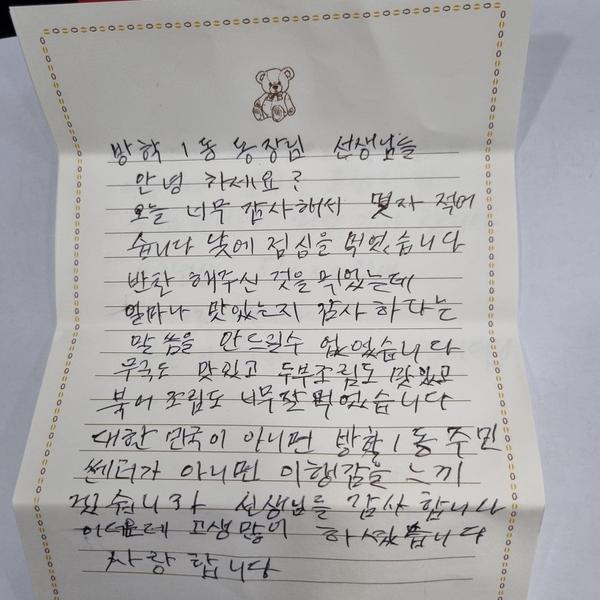 방학1동 동장님 선생님들
안녕 하세요?
오늘 너무 감사해서 몇자 적어
습니다 낮에 점심을 먹었습니다
반찬 해주신 것을 먹었는데
얼마나 맛있는지 감사 하다는
말씀을 안드릴수 없었습니다
무국도 맛있고 두부조림도 맛있고
북어 조림도 너무잘 먹었습니다
대한 민국이 아니면 방학1동 주민
쎈터가 아니면 이행감을 느끼
선생님들 감사 합니다
고생많이 하셨습니다
사랑합니다